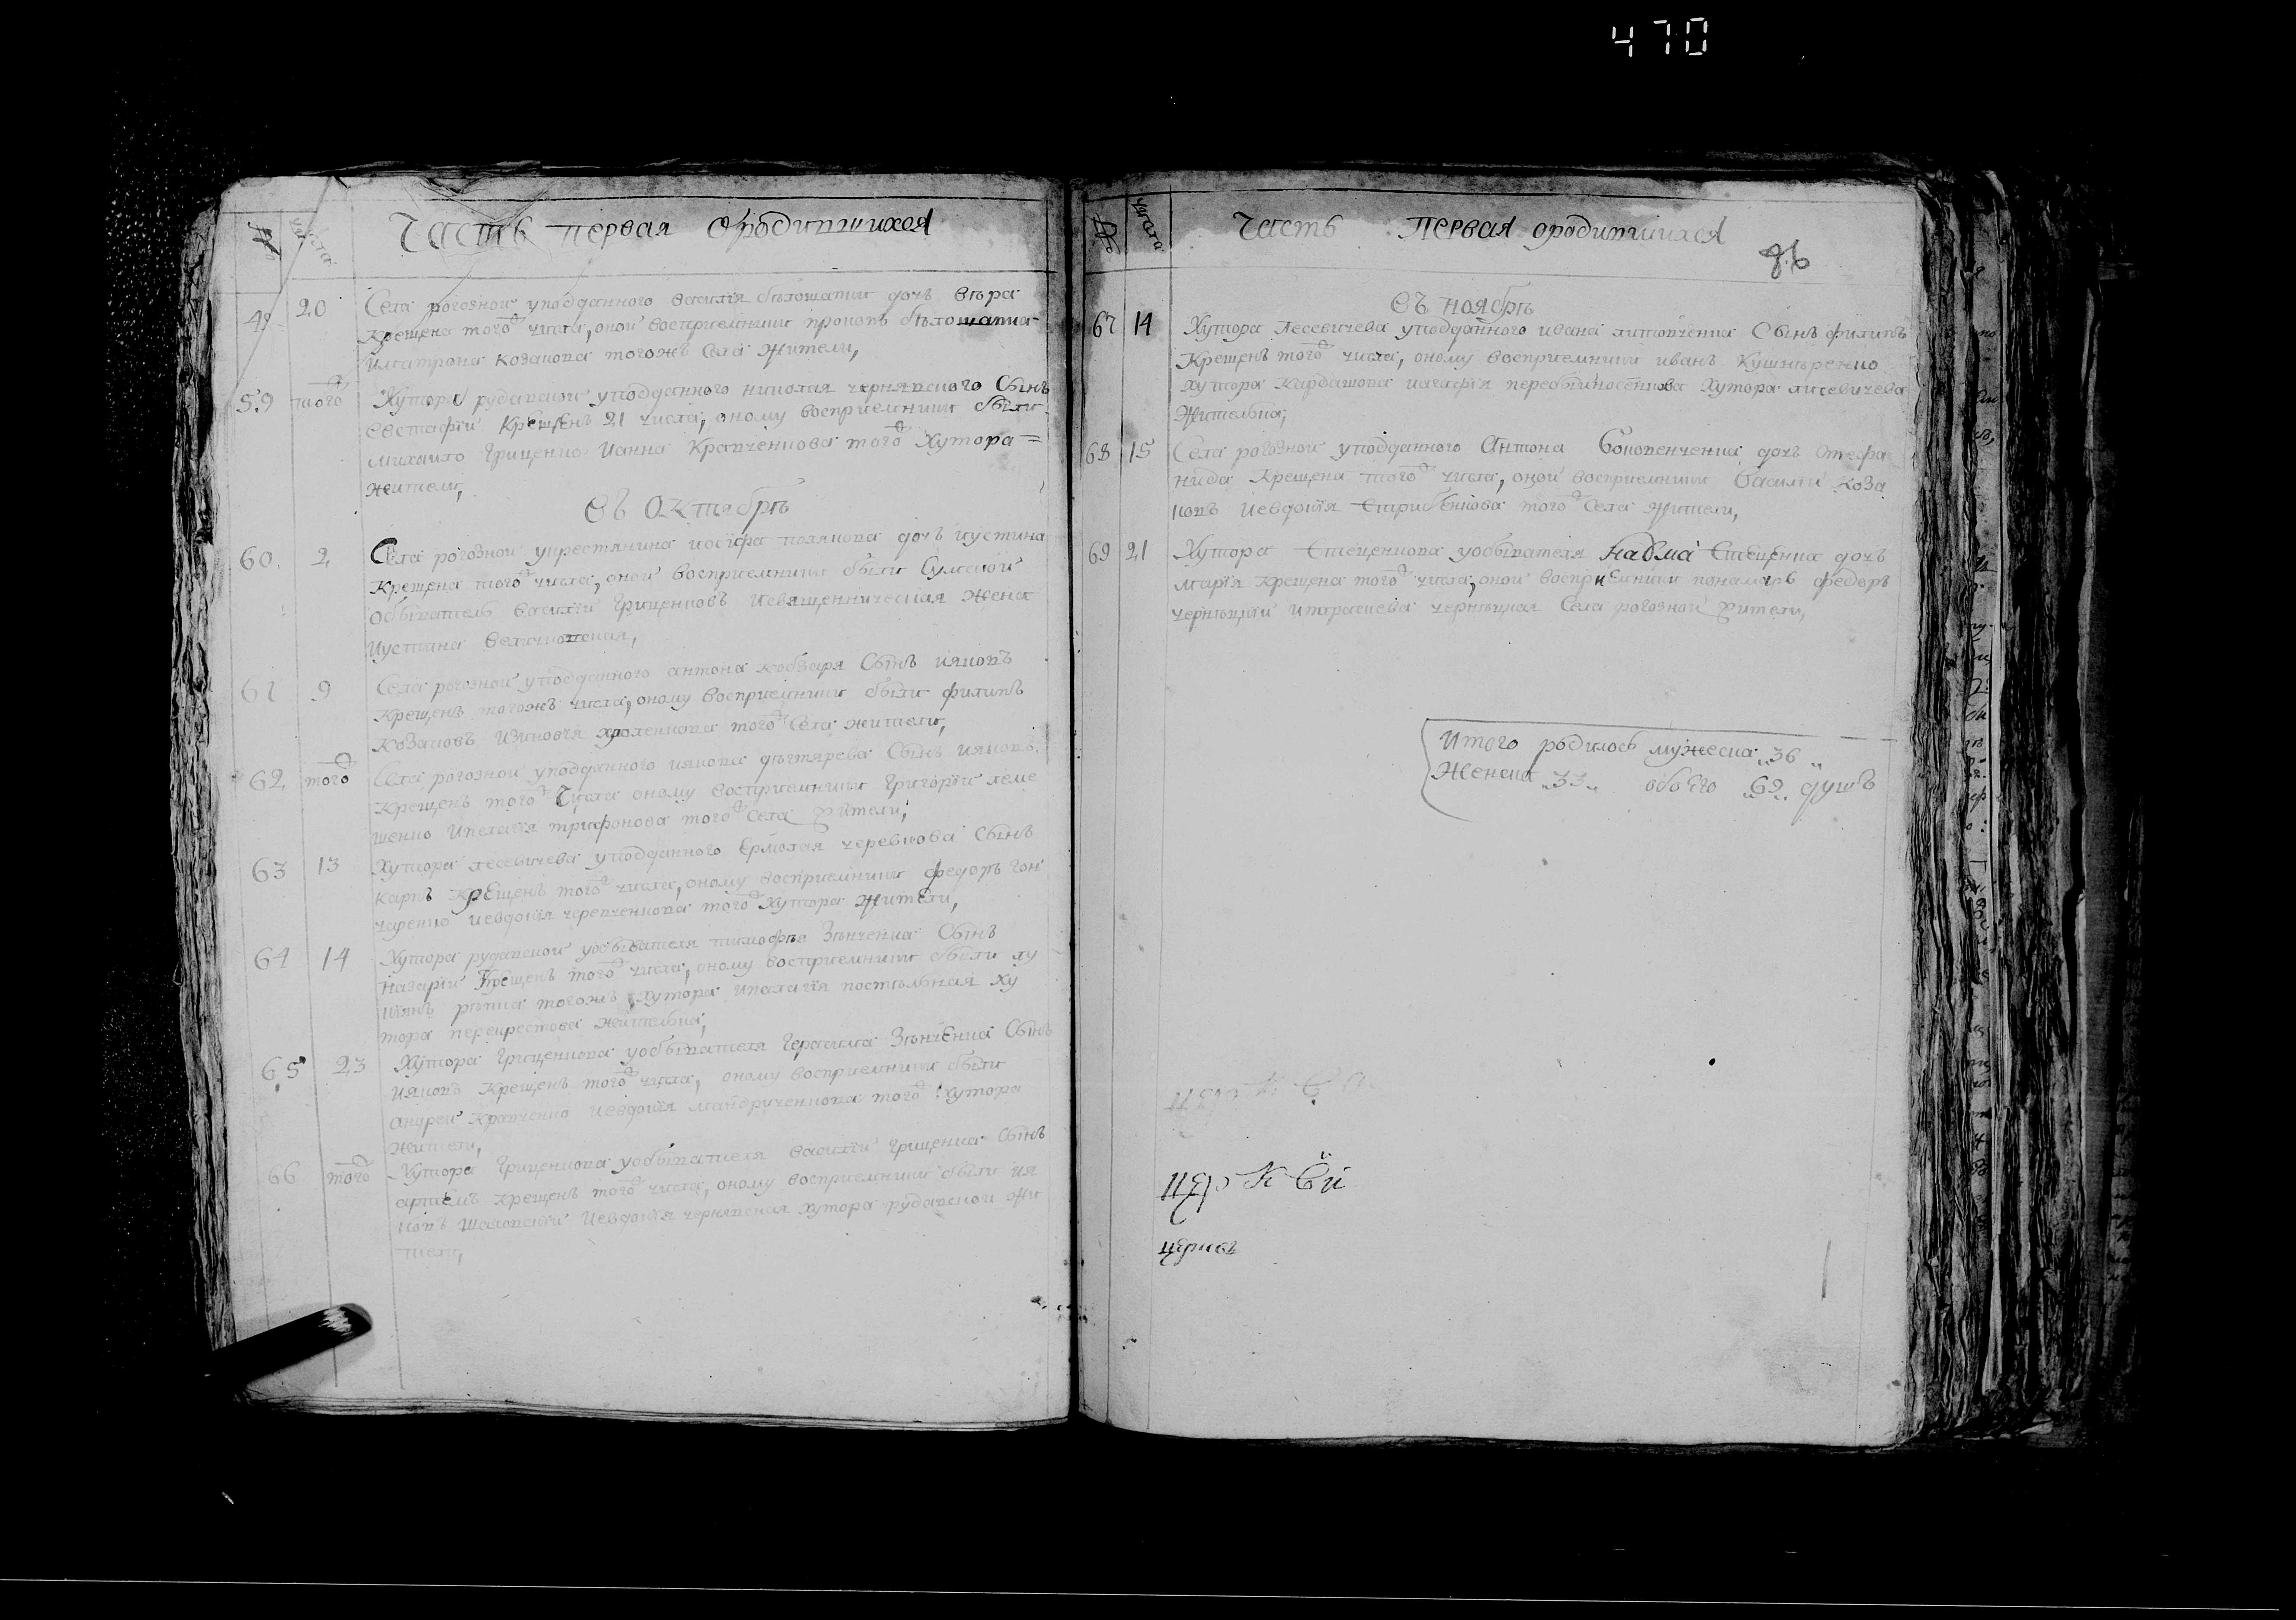 470
№ числа Часть первая ѡродившихся
20 Села рогозной уподданного василія бѣлошапки дочь вѣра
крещена того ж числа, оной восприемники прокопъ бѣлошапка
иматрона козакова тогожъ села жители,
59 того ж Хутора рудавской уподданного николая чернявского Сынъ
евстафій крещенъ 21 числа, оному восприемники были
михайло гриценко ианна кравченкова того ж хутора =
жители,
въ октябрѣ
60 2 Села рогозной укрестянина иосифа полякова дочь иустина
крещена того ж числа, оной восприемники были Сумской
обыватель василій гриценковъ исвященническая жена
иустина
61 9 Села рогозной уподданного антона кобзаря Сынъияковъ
крещенъ тогожъ числа, оному восприемники были филипъ
козаковъ изиновія того ж села жители,
62 того ж Села рогозной уподданного иякова дѣгтярева Сынъ ияковъ
крещенъ того ж числа оному восприемники григорій леме
шенко ипелагія трифонова того ж села жители;
63 13 Хутора лесевичева уподданного Ермолая черевкова Сынъ
карпъ крещенъ того ж числа, оному восприемники федоръ гон
чаренко иевдокія черевченкова того ж хутора жители,
64 14 Хутора рудавской уобывателя тимофѣя Зѣнченка Сынъ
назарій крещенъ того ж числа, оному восприемники были лу
кіянъ рѣпка тогожъ хутора ипелагія постѣльная ху
тора перекрестова жителка;
65 23 Хутора гриценкова уобывателя герасима Зѣнченка Сынъ
ияковъ крещенъ того ж числа, оному восприемники были
андрей кравченко иевдокія мандриченкова того ж хутора
жители,
66 того ж Хутора гриценкова уобывателя василій гриценка Сынъ
артемъ крещенъ того ж числа, оному восприемники были ия
ковъ иевдокія чернявская хутора рудавской жи
тели,
№ числа Часть Первая ѡродившихся
86
въ ноябрѣ
67 14 Хутора Лесевичева уподданного ивана литовченка Сынъ филипъ
крещенъ того ж числа, оному восприемники иванъ кушнѣренко
хутора кардашова иагафія хутора лисевичева
жителка;
68 15 Села рогозной уподданного Антона Боковенченка дочь Стефа
нида крещена того ж числа, оной восприемники василій коза
ковъ иевдокія того ж села жители,
69 21 Хутора Стеценкова уобывателя наѡма Стеценка дочь
марія крещена того ж числа, оной восприемники понамарь федоръ
чернѣцкій ипараскева чернѣцкая села рогозной жители,
итого родилось мужеска 36
женска 33 обоего 69 душъ
церкви